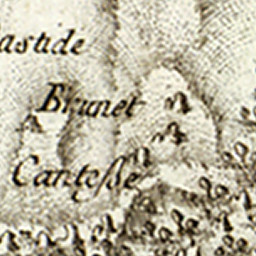 astide
Brunet
Canteſse